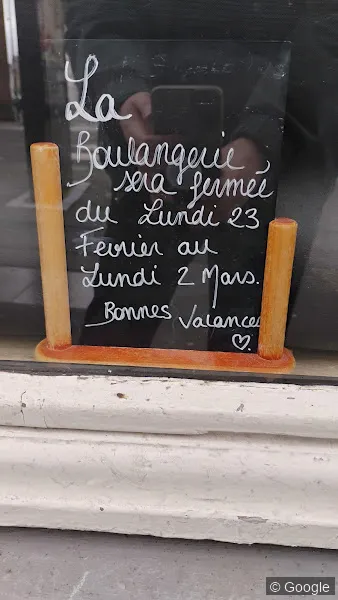 La
Boulangerie
sera fermée
du Lundi 23
Fevrier au
Lundi 2 Mars.
Bonnes Vacances
© Google